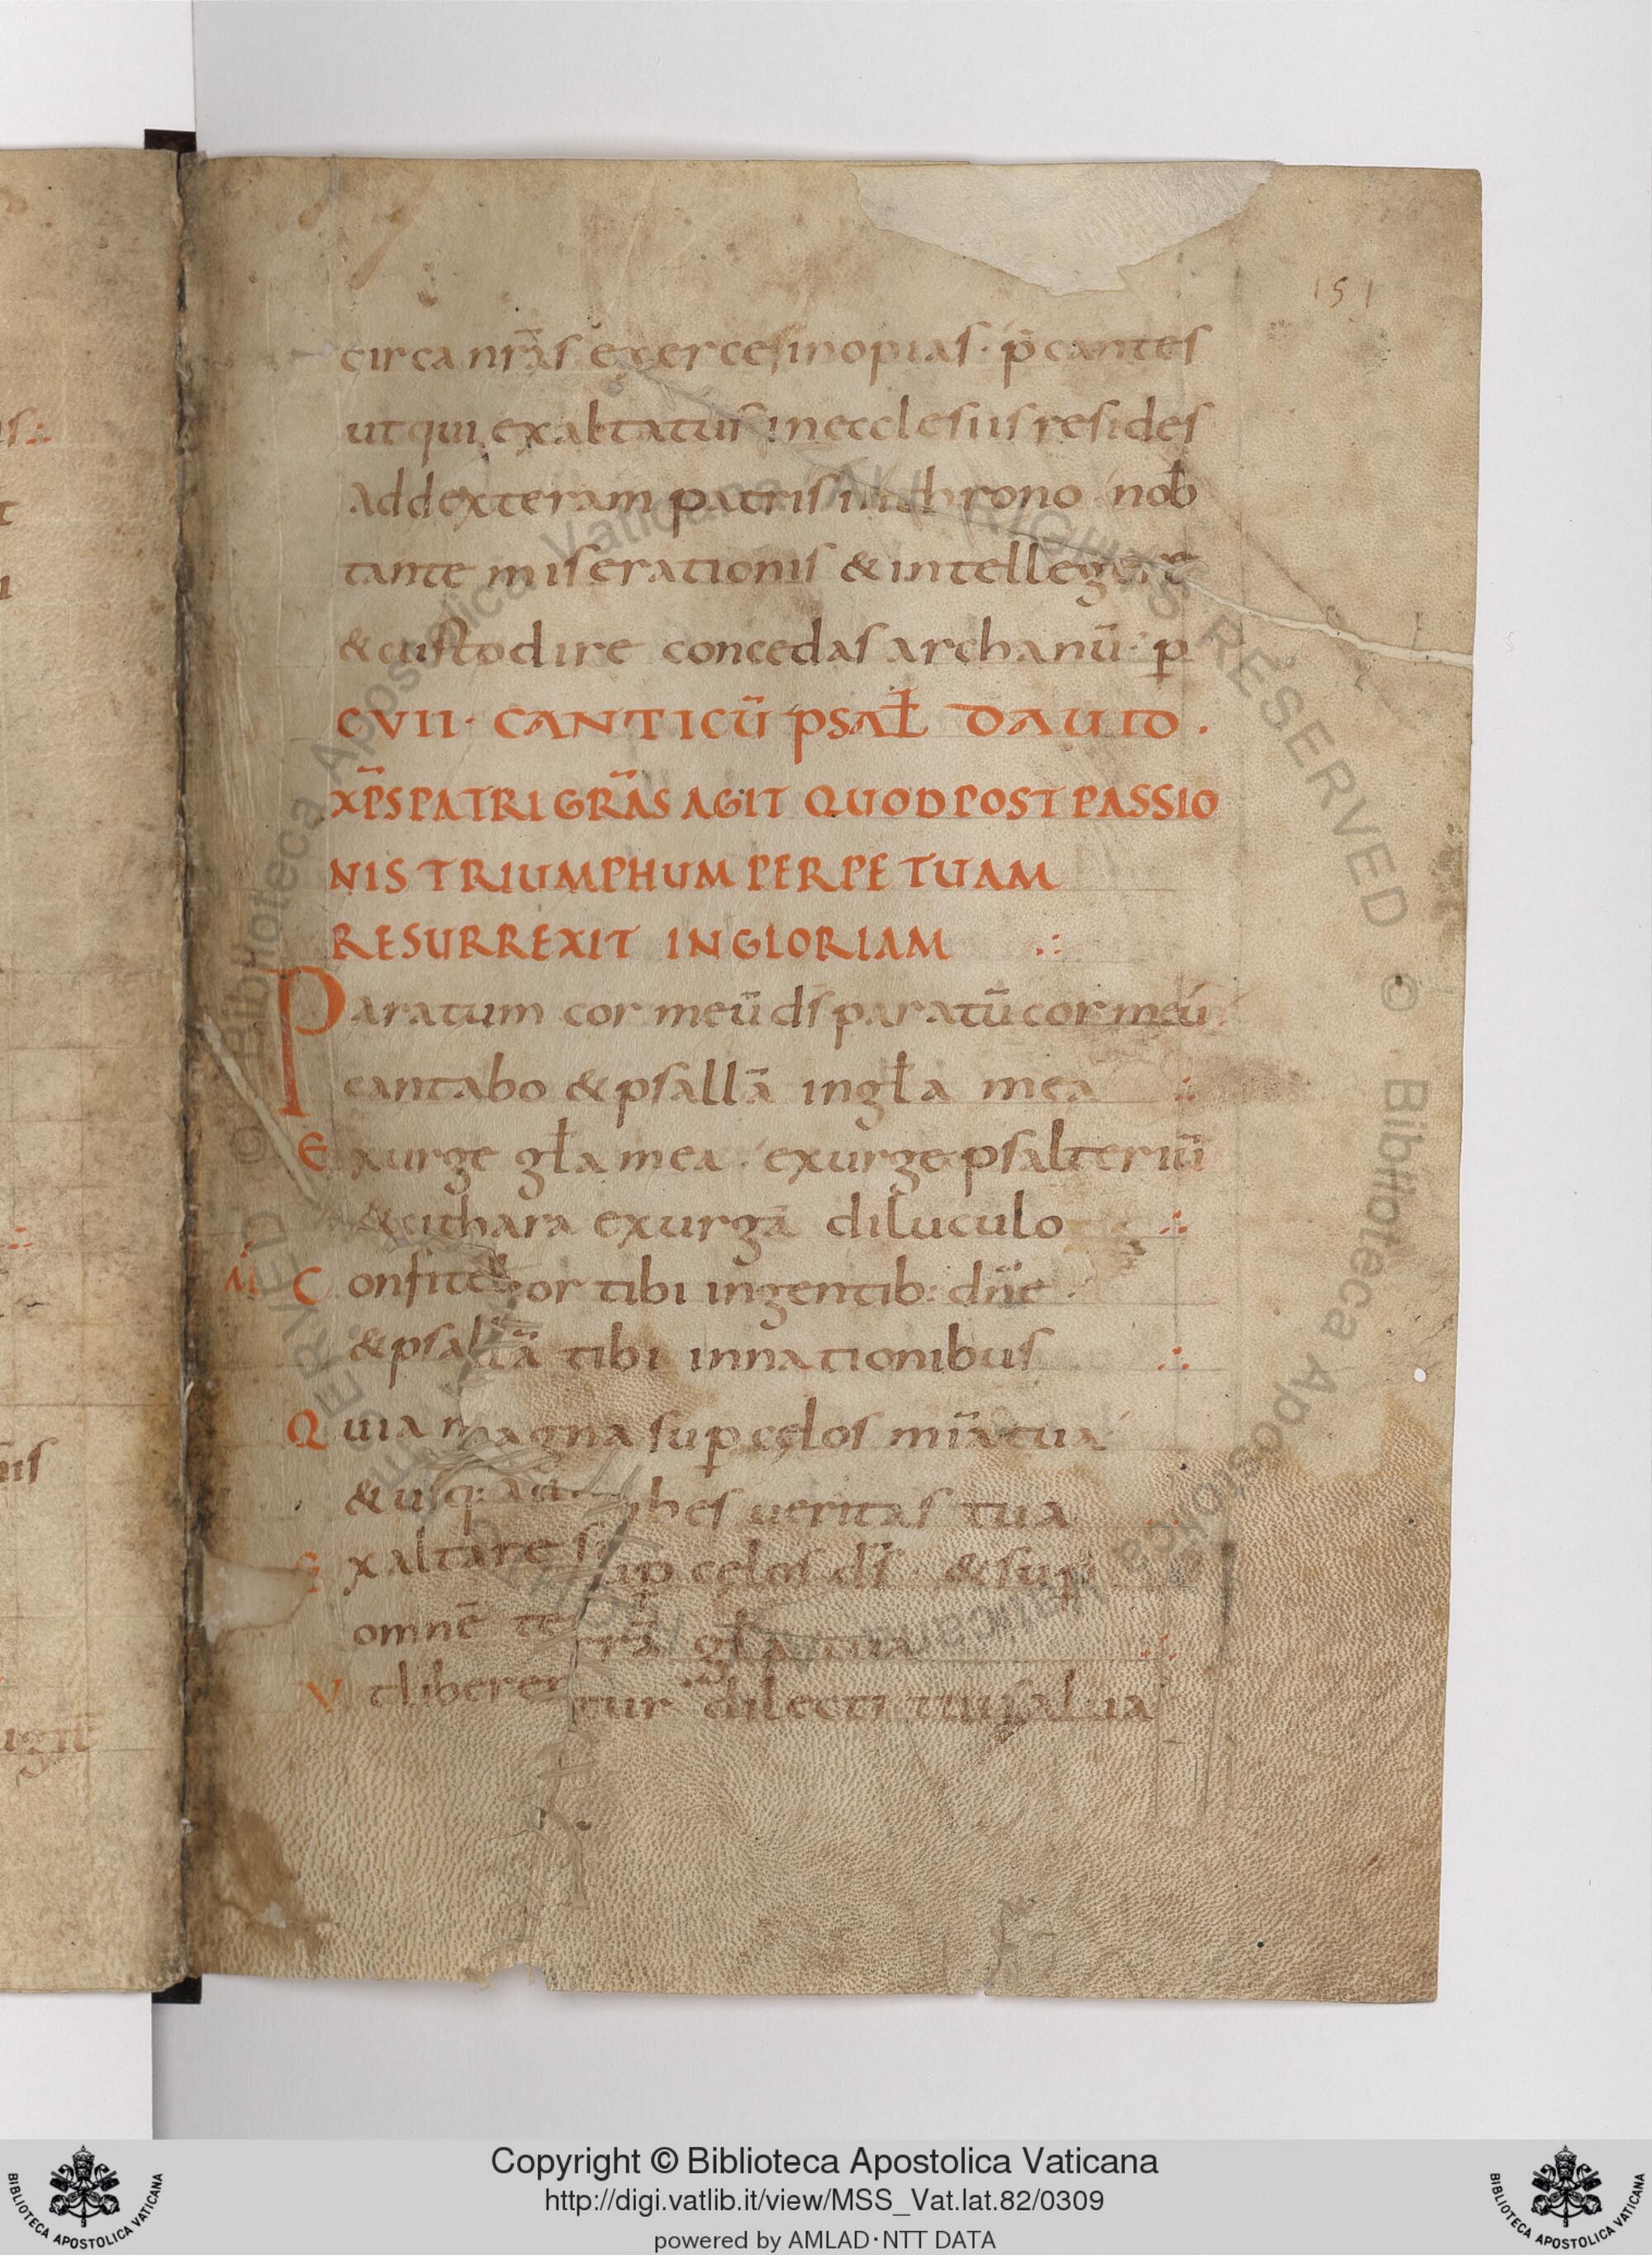 151
circa nr̄as exerces inopias · p̄cantes
ut qui exaltatus in ecclesiis resides
ad dexteram patris in throno nob
tante miserationis & intellegere
& custodire concedas archanū · p
CVII · CANTICŪ PSAŁ DAUID .
XP̄S PATRI GRĀS AGIT QUOD POST PASSIO
NIS TRIUMPHUM PERPETUAM
RESURREXIT IN GLORIAM .:
Paratum cor meū ds paratū cor meū
cantabo & psallā in gła mea .:
Exurge gła mea . exurge psalteriū
& cithara exurgā diluculo .:
M̄ Confitebor tibi in gentib: dn̄e .
& psallā tibi in nationibus .:
Quia magna sup celos mīa tua
& usq: ad nubes ueritas tua .:
Exaltare sup celos ds̄ . & sup
omnē terrā gła tua .:
Vt liberentur dilecti tui salua
Copyright © Biblioteca Apostolica Vaticana
http://digi.vatlib.it/view/MSS_Vat.lat.82/0309
powered by AMLAD·NTT DATA
BIBLIOTECA APOSTOLICA VATICANA
BIBLIOTECA APOSTOLICA VATICANA